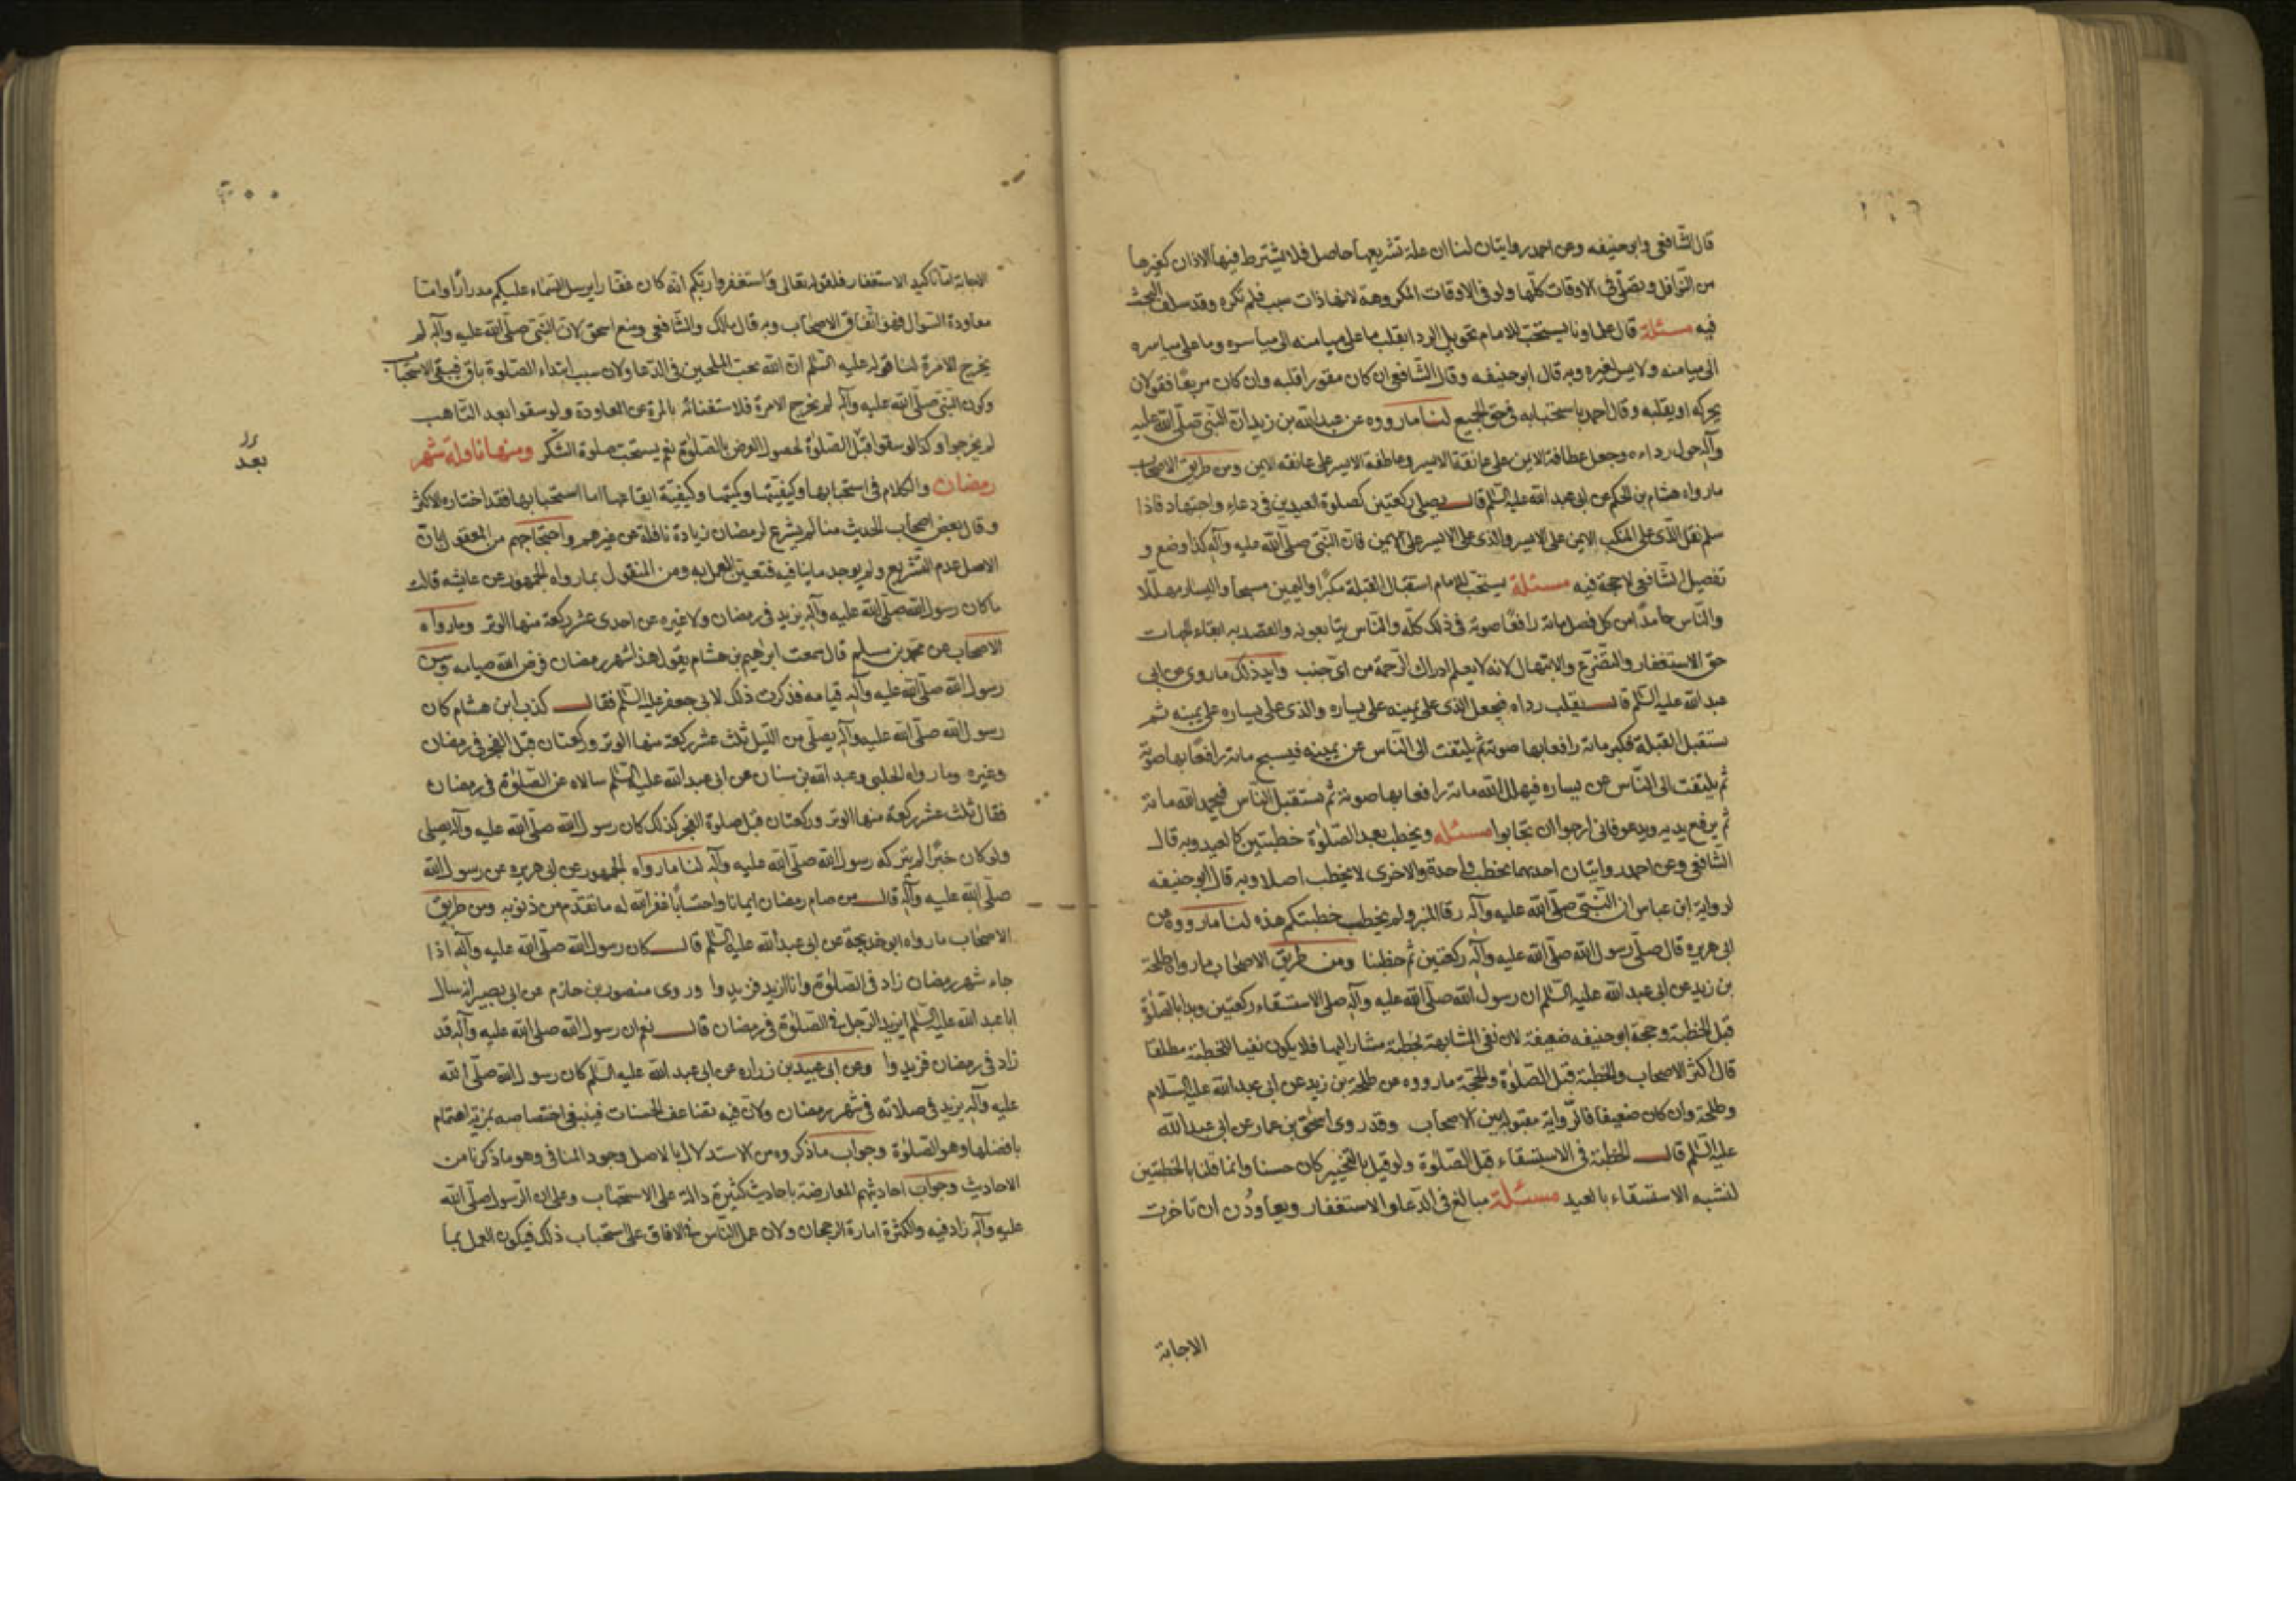 قال الشافعى وابو حنيفه وعن احمد روايتان لنا ان علة تشريعها حاصل فلا يشترط فيها الاذان كغيرها
من النوافل وتصلى فى الاوقات كلها ولو فى الاوقات المكروهة لانها ذات سبب فلم تكره وقد سلف البحث
فيه مسئلة قال علماونا يستحب للامام تحويل الردا بقلب ما على ميامنه الى مياسره وما على مياسره
الى ميامنه ولا يسن لغيره وبه قال ابو حنيفه وقال الشافعى ان كان مقورا قلبه وان كان مربعا فقولان
يحركه او يقلبه وقال احمد باستحبابه فى حق الجميع لنا ما رووه عن عبد الله بن زيد ان النبى صلى الله عليه
وآله حول رداءه وجعل عطافه الايمن على عاتقه الايسر وعطافه الايسر على عاتقه الايمن ومن طريق الاصحاب
ما رواه هشام بن الحكم عن ابى عبد الله عليه السلم قال يصلى ركعتين كصلوة العيدين فى دعاء واجتهاد فاذا
سلم نقل الذى على المنكب الايمن على الايسر والذى على الايسر على الايمن فان النبى صلى الله عليه وآله كذا وضع و
تفصيل الشافعى لا حجة فيه مسئلة يستحب للامام استقبال القبلة مكبرا واليمين مسبحا واليسار مهللا
والناس حامدا من كل فصل مائة رافعا صوته فى ذلك كله والناس يتابعونه والقصد به ايفاء الجهات
حق الاستغفار والتضرع والابتهال لانه لا يعلم ادراك الرحمة من اى جنب وايد ذلك ما روى عن ابى
عبد الله عليه السلم قال يقلب رداه فيجعل الذى على يمينه على يساره والذى على يساره على يمينه ثم
يستقبل القبلة فكبر مائة رافعا بها صوته ثم يلتفت الى الناس عن يمينه فيسبح مائة رافعا بها صوته
ثم يلتفت الى الناس عن يساره فيهلل الله مائة رافعا بها صوته ثم يستقبل الناس فيحمد الله مائة
ثم يرفع يديه ويدعو فانى ارجو ان تجابوا مسئله ويخطب بعد الصلوة خطبتين كالعيد وبه قال
الشافعى وعن احمد روايتان احدهما يخطب واحدة والاخرى لا يخطب اصلا وبه قال ابو حنيفه
لرواية ابن عباس ان النبى صلى الله عليه وآله رقا المنبر ولم يخطب خطبتكم هذه لنا ما رووه عن
ابى هريره قال صلى رسول الله صلى الله عليه وآله ركعتين ثم خطبنا ومن طريق الاصحاب ما رواه طلحة
بن زيد عن ابى عبد الله عليه السلم ان رسول الله صلى الله عليه وآله صلى الاستسقاء ركعتين وبدا بالصلوة
قبل الخطبة وحجة ابو حنيفه ضعيفة لان نفى المشابهة لخطبة مشار اليها فلا يكون نفيا للخطبة مطلقا
قال اكثر الاصحاب والخطبة قبل الصلوة والحجة ما رووه عن طلحة بن زيد عن ابى عبد الله عليه السلام
وطلحة وان كان ضعيفا فالرواية مقبولة بين الاصحاب وقد روى اسحق بن عمار عن ابى عبد الله
عليه السلم قال الخطبة فى الاستسقاء قبل الصلوة ولو قيل بالتخيير كان حسنا وانما قلنا بالخطبتين
لنشبه الاستسقاء بالعيد مسئلة مبالغ فى الدعاء والاستغفار ويعاودن ان تاخرت
الاجابة
الاجابة اما تاكيد الاستغفار فلقوله تعالى واستغفروا ربكم انه كان غفارا يرسل السماء عليكم مدرارا واما
معاودة السوال فهو اتفاق الاصحاب وبه قال مالك والشافعى ومنع اسحق لان النبى صلى الله عليه وآله لم
يخرج الا مرة لنا قوله عليه السلم ان الله يحب الملحين فى الدعا ولان سبب ابتداء الصلوة باق فيبقى الاستحباب
وكون النبى صلى الله عليه وآله لم يخرج الا مرة فلاستغنائه بالمرة عن المعاودة ولو سقوا بعد التاهب
لم يخرجوا وكذا لو سقوا قبل الصلوة لحصول الغرض بالصلوة نعم يستحب صلوة الشكر ومنها نافلة شهر
بعد
رمضان والكلام فى استحبابها وكيفيتها وكميتها وكيفية ايقاعها اما استحبابها فقد اختاره الاكثر
وقال بعض اصحاب الحديث منا لم يشرع لرمضان زيادة نافلة عن غيرهم واحتجاجهم من المعقول بان
الاصل عدم التشريع ولم يوجد ما ينافيه فتعين العمل به ومن المنقول بما رواه الجمهور عن عايشه قالت
ما كان رسول الله صلى الله عليه وآله يزيد فى رمضان ولا غيره عن احدى عشر ركعة منها الوتر وما رواه
الاصحاب عن محمد بن مسلم قال سمعت ابرهيم بن هشام يقول هذا شهر رمضان فرض الله صيامه وسن
رسول الله صلى الله عليه وآله قيامه فذكرت ذلك لابى جعفر عليه السلم فقال كذب ابن هشام كان
رسول الله صلى الله عليه وآله يصلى من الليل ثلث عشر ركعة منها الوتر وركعتان قبل الفجر فى رمضان
وغيره وما رواه الحلبى وعبد الله بن سنان عن ابى عبد الله عليه السلم سالاه عن الصلوة فى رمضان
فقال ثلث عشر ركعة منها الوتر وركعتان قبل صلوة الفجر كذلك كان رسول الله صلى الله عليه وآله يصلى
ولو كان خيرا لم يتركه رسول الله صلى الله عليه وآله لنا ما رواه الجمهور عن ابى هريره عن رسول الله
صلى الله عليه وآله قال من صام رمضان ايمانا واحتسابا غفر الله له ما تقدم من ذنوبه ومن طريق
الاصحاب ما رواه ابو خديجة عن ابى عبد الله عليه السلم قال كان رسول الله صلى الله عليه وآله اذا
جاء شهر رمضان زاد فى الصلوة وانا ازيد فزيدوا وروى منصور بن حازم عن ابى بصير انه سال
ابا عبد الله عليه السلم ايزيد الرجل فى الصلوة فى رمضان قال نعم ان رسول الله صلى الله عليه وآله قد
زاد فى رمضان فزيدوا وعن ابى عبيد بن زراره عن ابى عبد الله عليه السلم كان رسول الله صلى الله
عليه وآله يزيد فى صلاته فى شهر رمضان ولان فيه تضاعف الحسنات فينبغى اختصاصه بمزية اهتمام
بافضلها وهو الصلوة وجواب ما ذكروه من الاستدلال بالاصل وجود المنافى وهو ما ذكرنا من
الاحاديث وجواب احاديثهم المعارضة باحاديث كثيرة دالة على الاستحباب وعلى ان الرسول صلى الله
عليه وآله زاد فيه والكثرة امارة الرجحان ولان عمل الناس فى الافاق على استحباب ذلك فيكون العمل بما